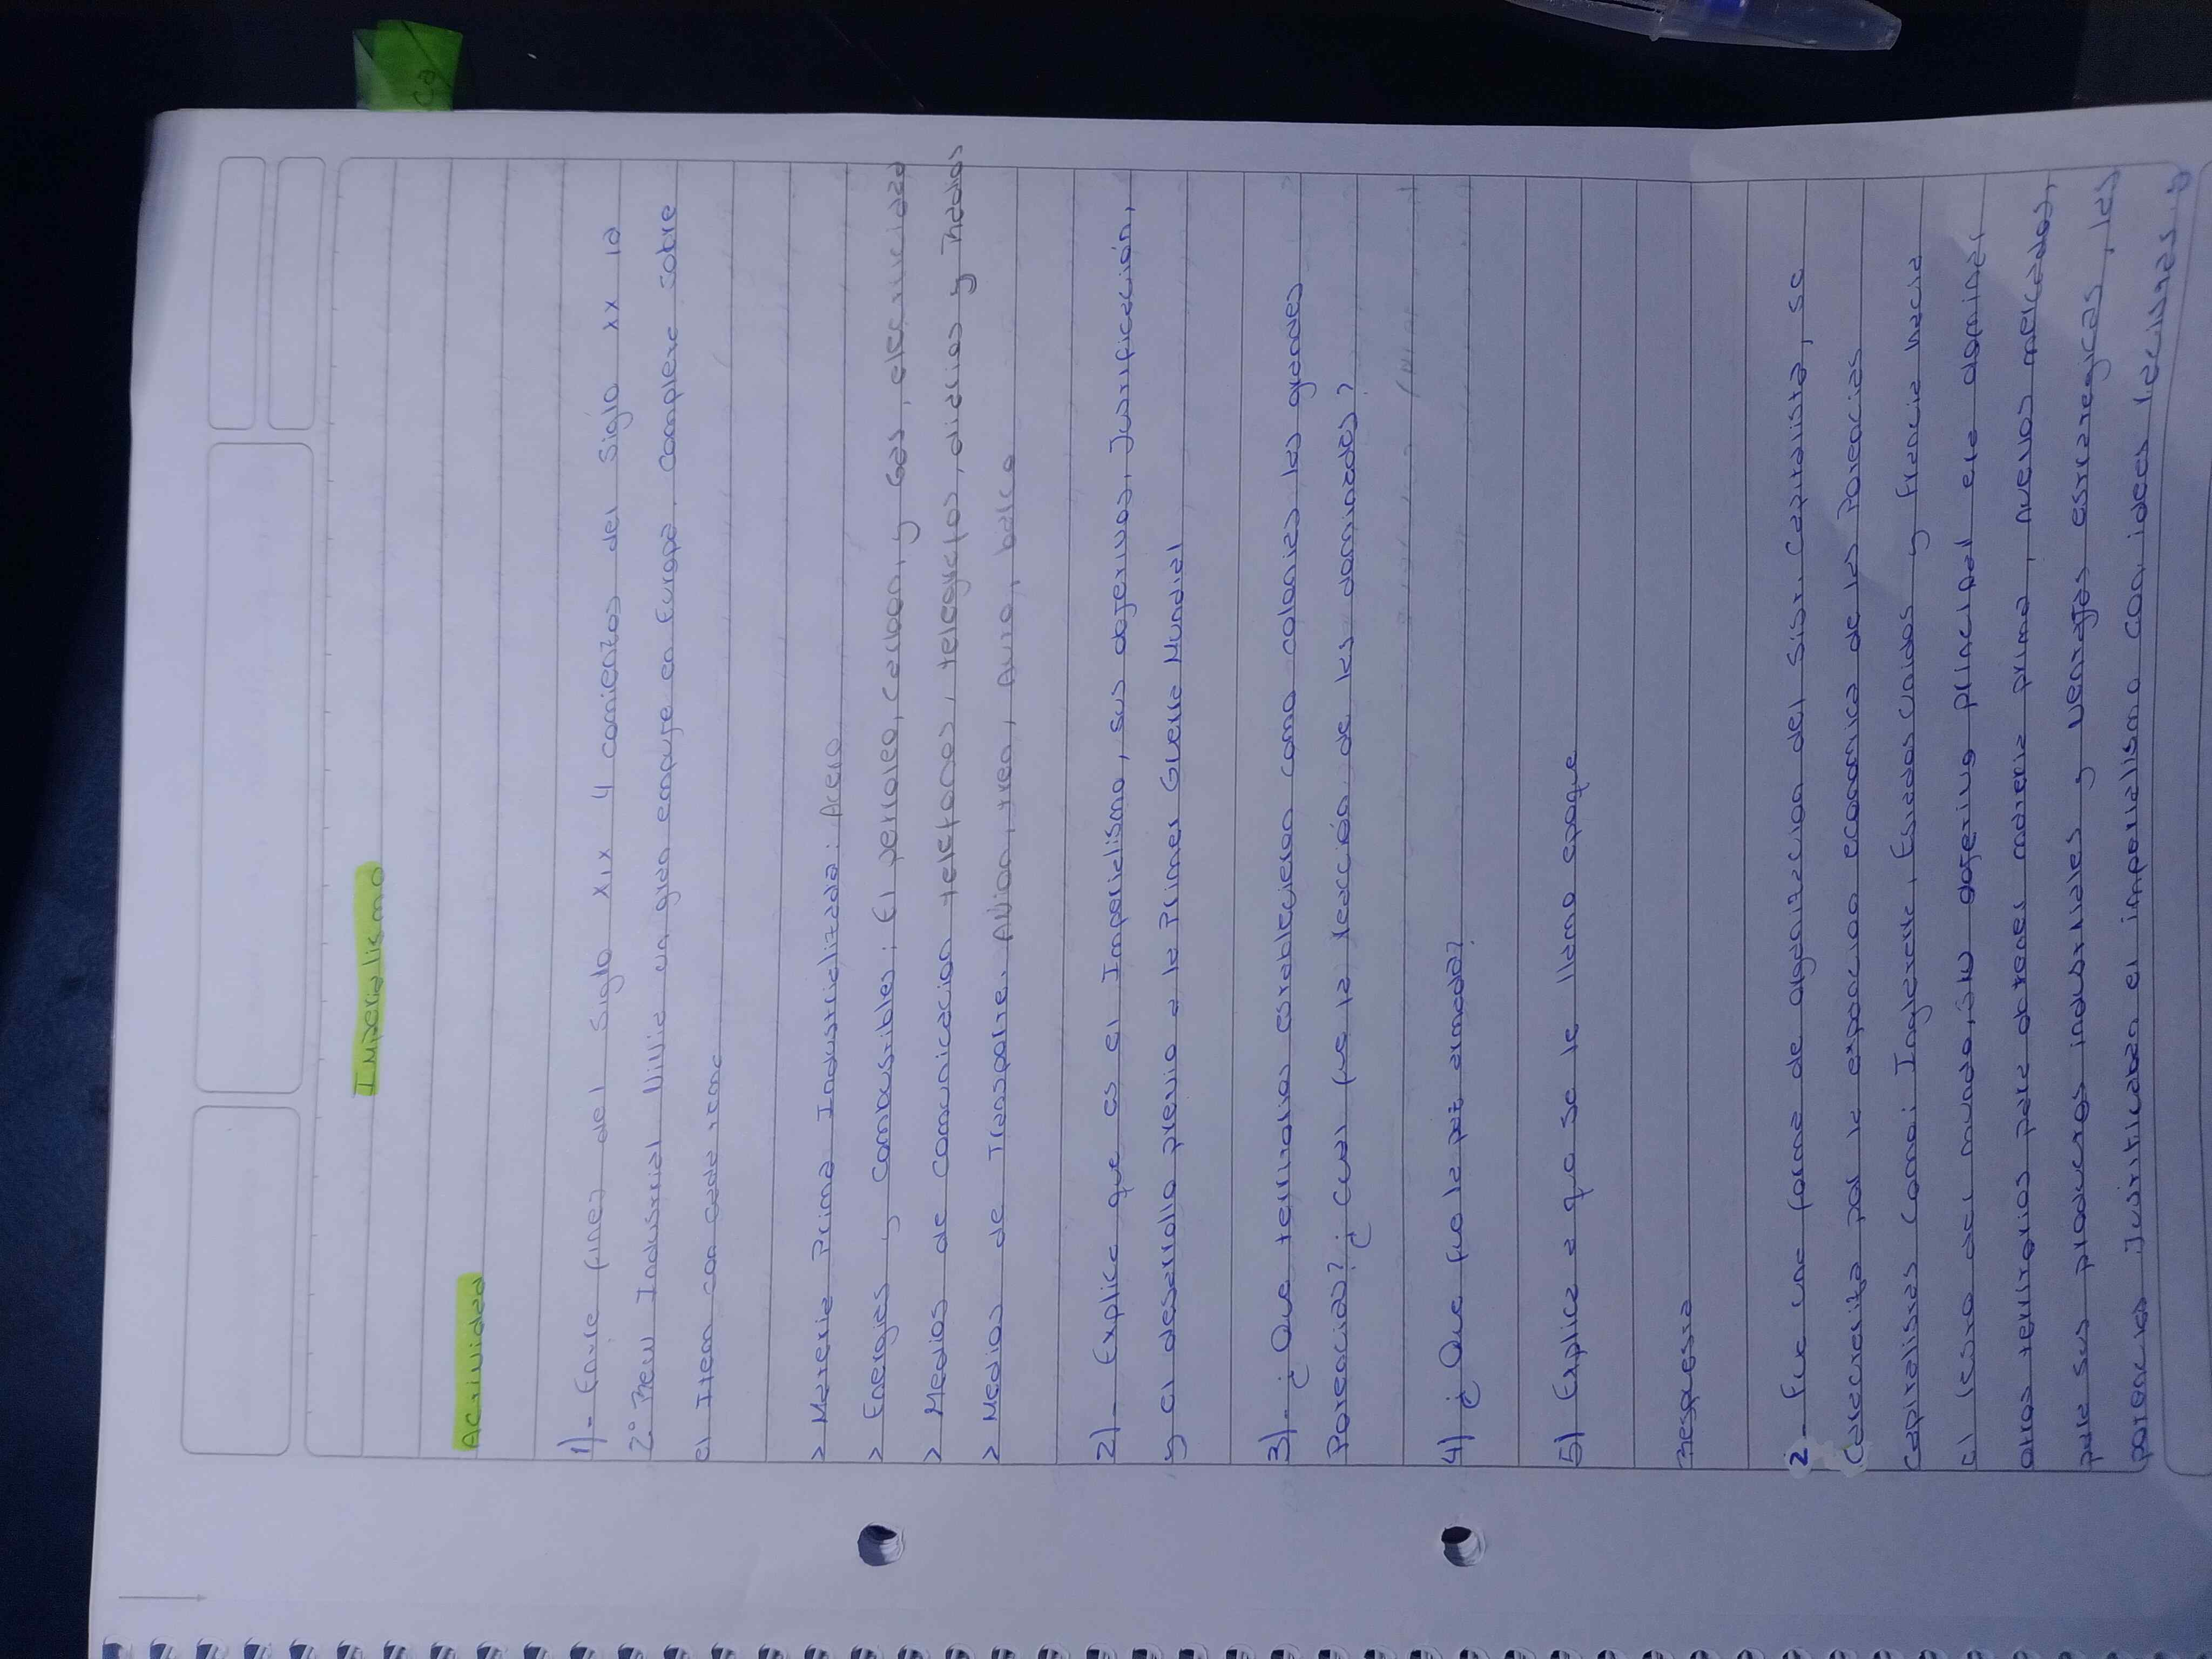 Imperialismo
Actividad
1)- Entre fines del siglo XIX y comienzos del siglo XX la
2° Revu Industrial Nivia un gran empuje en Europa, complete sobre
el Item con cada tema
> Materia Prima Industrializada: Acero
> Energias y Combustibles: El petroleo, Carbon, y Gas, electricidad
> Medios de comunicacion telefonos, telegrafos, diarios y radios
> Medios de Transporte. Avion, tren, Auto, barco
2)- Explica que es el Imperialismo, sus objetivos, Justificación,
y el desarrollo previo a la Primer Guerra Mundial
3)- ¿Que territorios establecieron como colonias las grandes
Potencias? ¿Cual fue la reacción de las dominadas?
4) ¿Que fue la paz armada?
5) Explica a que se le llamo epoque
Respuesta
2- Fue una forma de organizacion del Sist. Capitalista, se
Caracterizo por la expancion economica de las Potencias
Capitalistas como: Inglaterra, Estados Unidos y Francia hacia
el resto del mundo, su objetivo principal era dominar
otros territorios para obtener materia prima, nuevos mercados,
para sus productos industriales y ventajas estrategicas, las
potencias justificaban el imperialismo con ideas racistas y
Ca